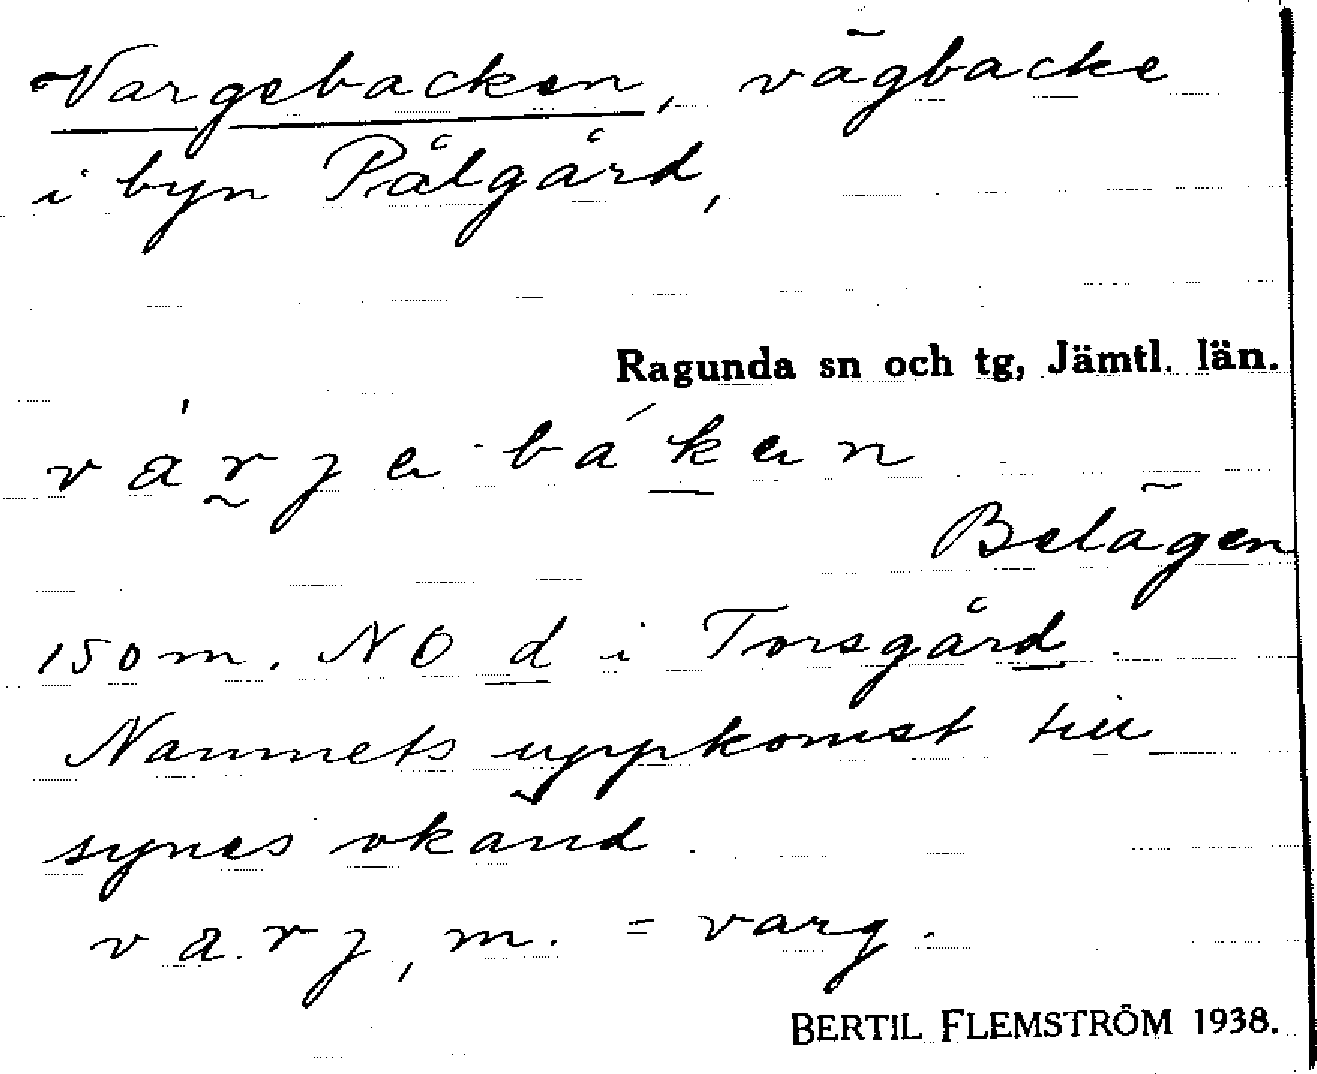 Vargebacken, vägbacke
i byn Pålgård,
Ragunda sn och tg, Jämtl. län.
várje-bákən
Belägen
150 m. NO d i Torsgård
Namnets uppkomst till
synes okänd.
varj, m. = varg.
BERTIL FLEMSTRÖM 1938.